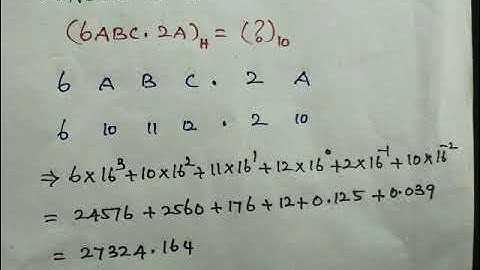 (6ABC.2A)H = (?)10
6 A B C . 2 A
6 10 11 12 . 2 10
⇒ 6×16³+10×16²+11×16¹+12×16⁰+2×16⁻¹+10×16⁻²
= 24576+2560+176+12+0.125+0.039
= 27324.164